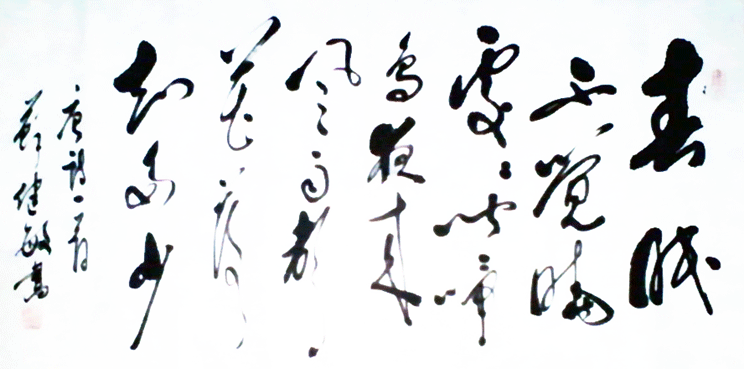 春眠
不觉晓
处处闻啼
鸟夜来
风雨声
花落
知多少
唐诗一首
健敏书